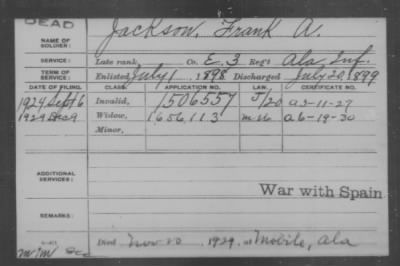 DEAD
NAME OF SOLDIER: Jackson, Frank A.
SERVICE: Late rank, Co. E, 3 Reg't Ala. Inf.
TERM OF SERVICE: Enlisted July 1 1898 Discharged July 20, 1899
DATE OF FILING. CLASS. APPLICATION NO. LAW. CERTIFICATE NO.
1924 Sept 6 Invalid, 1506557 5/20 a2-11-27
1929 Dec 9 Widow, 1656113 m-26 a6-19-30
Minor,
ADDITIONAL SERVICES:
War with Spain
REMARKS:
Died Nov 20 1929, at Mobile, Ala